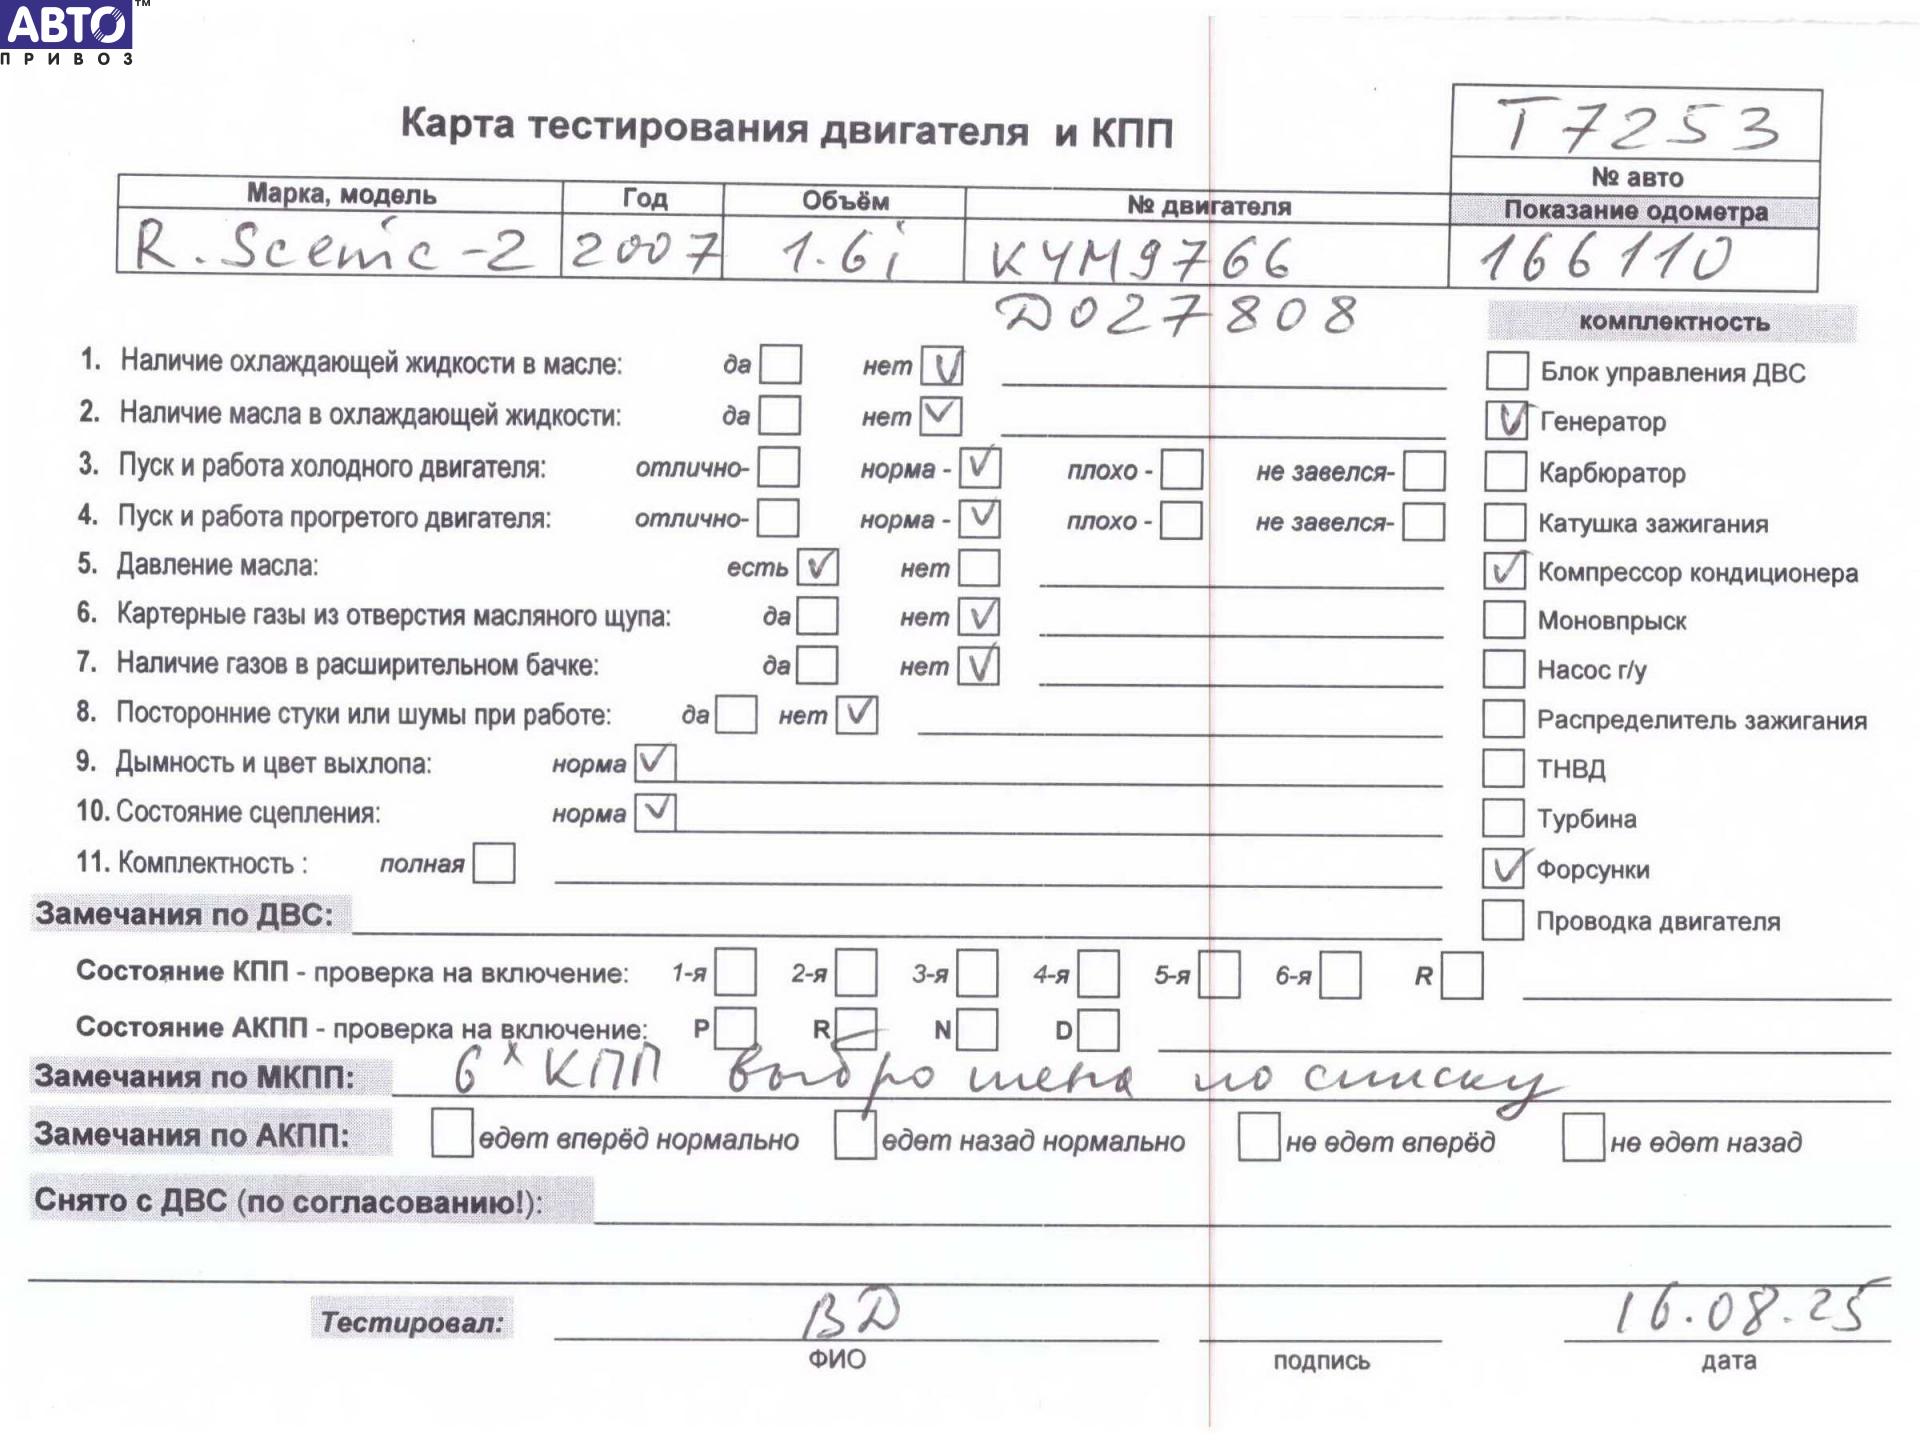 АВТО™
ПРИВОЗ
Карта тестирования двигателя и КПП
Т7253
№ авто
Марка, модель Год Объём № двигателя Показание одометра
R. Scenic-2 2007 1.6i K4M9766 166110
D027808
комплектность
1. Наличие охлаждающей жидкости в масле: да нет V Блок управления ДВС
2. Наличие масла в охлаждающей жидкости: да нет V V Генератор
3. Пуск и работа холодного двигателя: отлично- норма - V плохо - не завелся- Карбюратор
4. Пуск и работа прогретого двигателя: отлично- норма - V плохо - не завелся- Катушка зажигания
5. Давление масла: есть V нет V Компрессор кондиционера
6. Картерные газы из отверстия масляного щупа: да нет V Моновпрыск
7. Наличие газов в расширительном бачке: да нет V Насос г/у
8. Посторонние стуки или шумы при работе: да нет V Распределитель зажигания
9. Дымность и цвет выхлопа: норма V ТНВД
10. Состояние сцепления: норма V Турбина
11. Комплектность : полная V Форсунки
Замечания по ДВС: Проводка двигателя
Состояние КПП - проверка на включение: 1-я 2-я 3-я 4-я 5-я 6-я R
Состояние АКПП - проверка на включение: P R N D
Замечания по МКПП: 6х КПП выброшена по списку
Замечания по АКПП: едет вперёд нормально едет назад нормально не едет вперёд не едет назад
Снято с ДВС (по согласованию!):
Тестировал: ВД 16.08.25
ФИО подпись дата